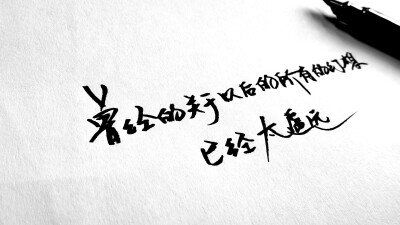 曾经的关于以后的所有的幻想
已经太遥远